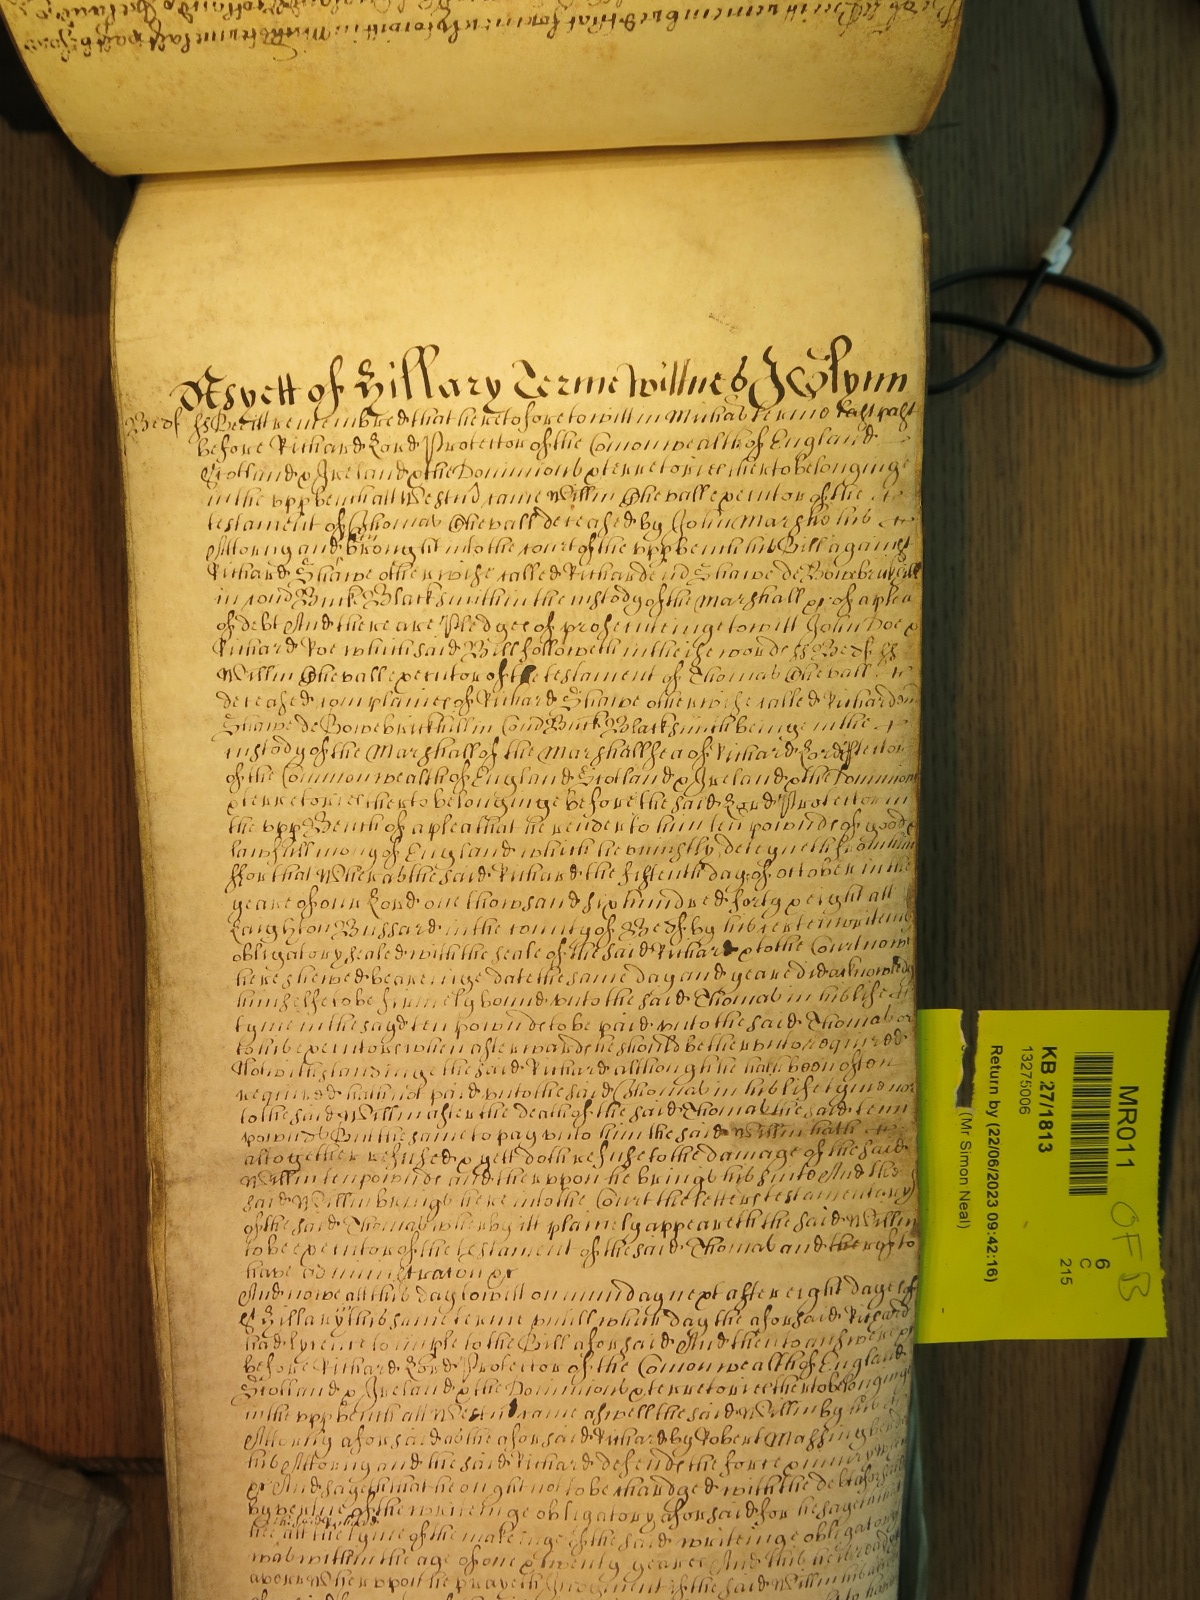 As yett of Hillary Terme Wittnes J Glynn
Bedf ss Be itt remembred that heretofore to witt in Michas terme last past
before Richard Lord Protector of the Comonwealth of England
Scotland & Ireland & the Dominions & terretories therto belonginge
in the upp bench att Westmr came Willm Chevall executor of the
testament of Thomas Chevall deceased by John Marshe his
Attorny and brought into the court of the upp bench his Bill against
Richard Shawe otherwise called Richard Shawe de Bowebrickhill
in Com Buck Blacksmith in the custody of the Marshall &c of a plea
of debt And there are Pledges of prosecuteinge to witt John Doe &
Richard Roe which said Bill followeth in theise words ss Bedf ss
Willm Chevall executor of the testament of Thomas Chevall
deceased complaines of Richard Shawe otherwise called Richard
Shawe de Bowebrickhill in Com Buck Blacksmith beinge in the
custody of the Marshall of the Marshallsea of Richard Lord Protector
of the Commonwealth of England Scotland & Ireland & the Dominions
& terretories therto belonginge before the said Lord Protector in
the upp Bench of a plea that he render to him ten pownds of good &
lawfull mony of England which he uniustly deteyneth from him
ffor that Wheras the said Richard the fifteenth day of october in the
yeare of our Lord one thowsand six hundred forty & eight att
Leighton Bussard in the county of Bedf by his certein writeinge
obligatory sealed with the seale of the said Richard & to the Court now
here shewed beareinge date the same day and yeare did acknowledg
himselfe to be firmely bound unto the said Thomas in his life
tyme in the sayd ten pownds to be paid unto the said Thomas or
to his executors when afterwards he should be therunto required
Notwithstandinge the said Richard although he hath been often
required hath not paid unto the said Thomas in his life tyme nor
to the said Willm after the death of the said Thomas the said tenn
pownds But the same to pay unto him the said Willm hath
altogether refused & yett doth refuse to the damage of the said
Willm ten pownds and therupon he brings his suite And the
said Willm brings here into the Court the letters testamentary
of the said Thomas wherby itt plainely appeareth the said Willm
to be executor of the testament of the said Thomas and therof to
have administracon &c
And nowe att this day to witt on munday next after eight dayes of
St Hillary this same terme untill which day the aforsaid Richard
had lycence to imple to the Bill aforsaid And then to answere &c
before Richard Lord Protector of the Comonwealth of England
Scotland & Ireland & the Dominions & terretories therto belonginge
in the upp bench att Westmr came aswell the said Willm by his
Attorny aforsaid as the aforsaid Richard by Robert Massingberde
his Attorny and the said Richard defends the force & iniury when
&c And sayeth that he ought not to be chardged with the debt aforsaid
by vertue of the writeinge obligatory aforsaid for he sayeth that
the said Richard
hee att the tyme of the makeinge of the said writeinge obligatory
was within the age of one & twenty yeares And this he is ready to
averr Wherupon he prayeth Judgment if the said Willm his
MR011
6
C
215
KB 27/1813
13275006
Return by (22/06/2023 09:42:16)
(Mr Simon Neal)
OF B